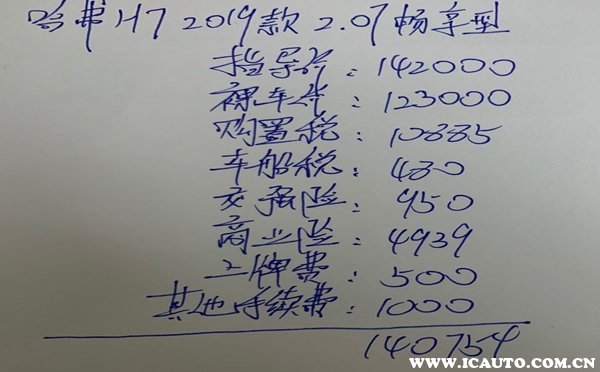 哈弗H7 2019款 2.0T 畅享型
指导价:142000
裸车价:123000
购置税:10885
车船税:480
交强险:950
商业险:4939
上牌费:500
其他手续费:1000
140754
爱卡汽车
WWW.ICAUTO.COM.CN